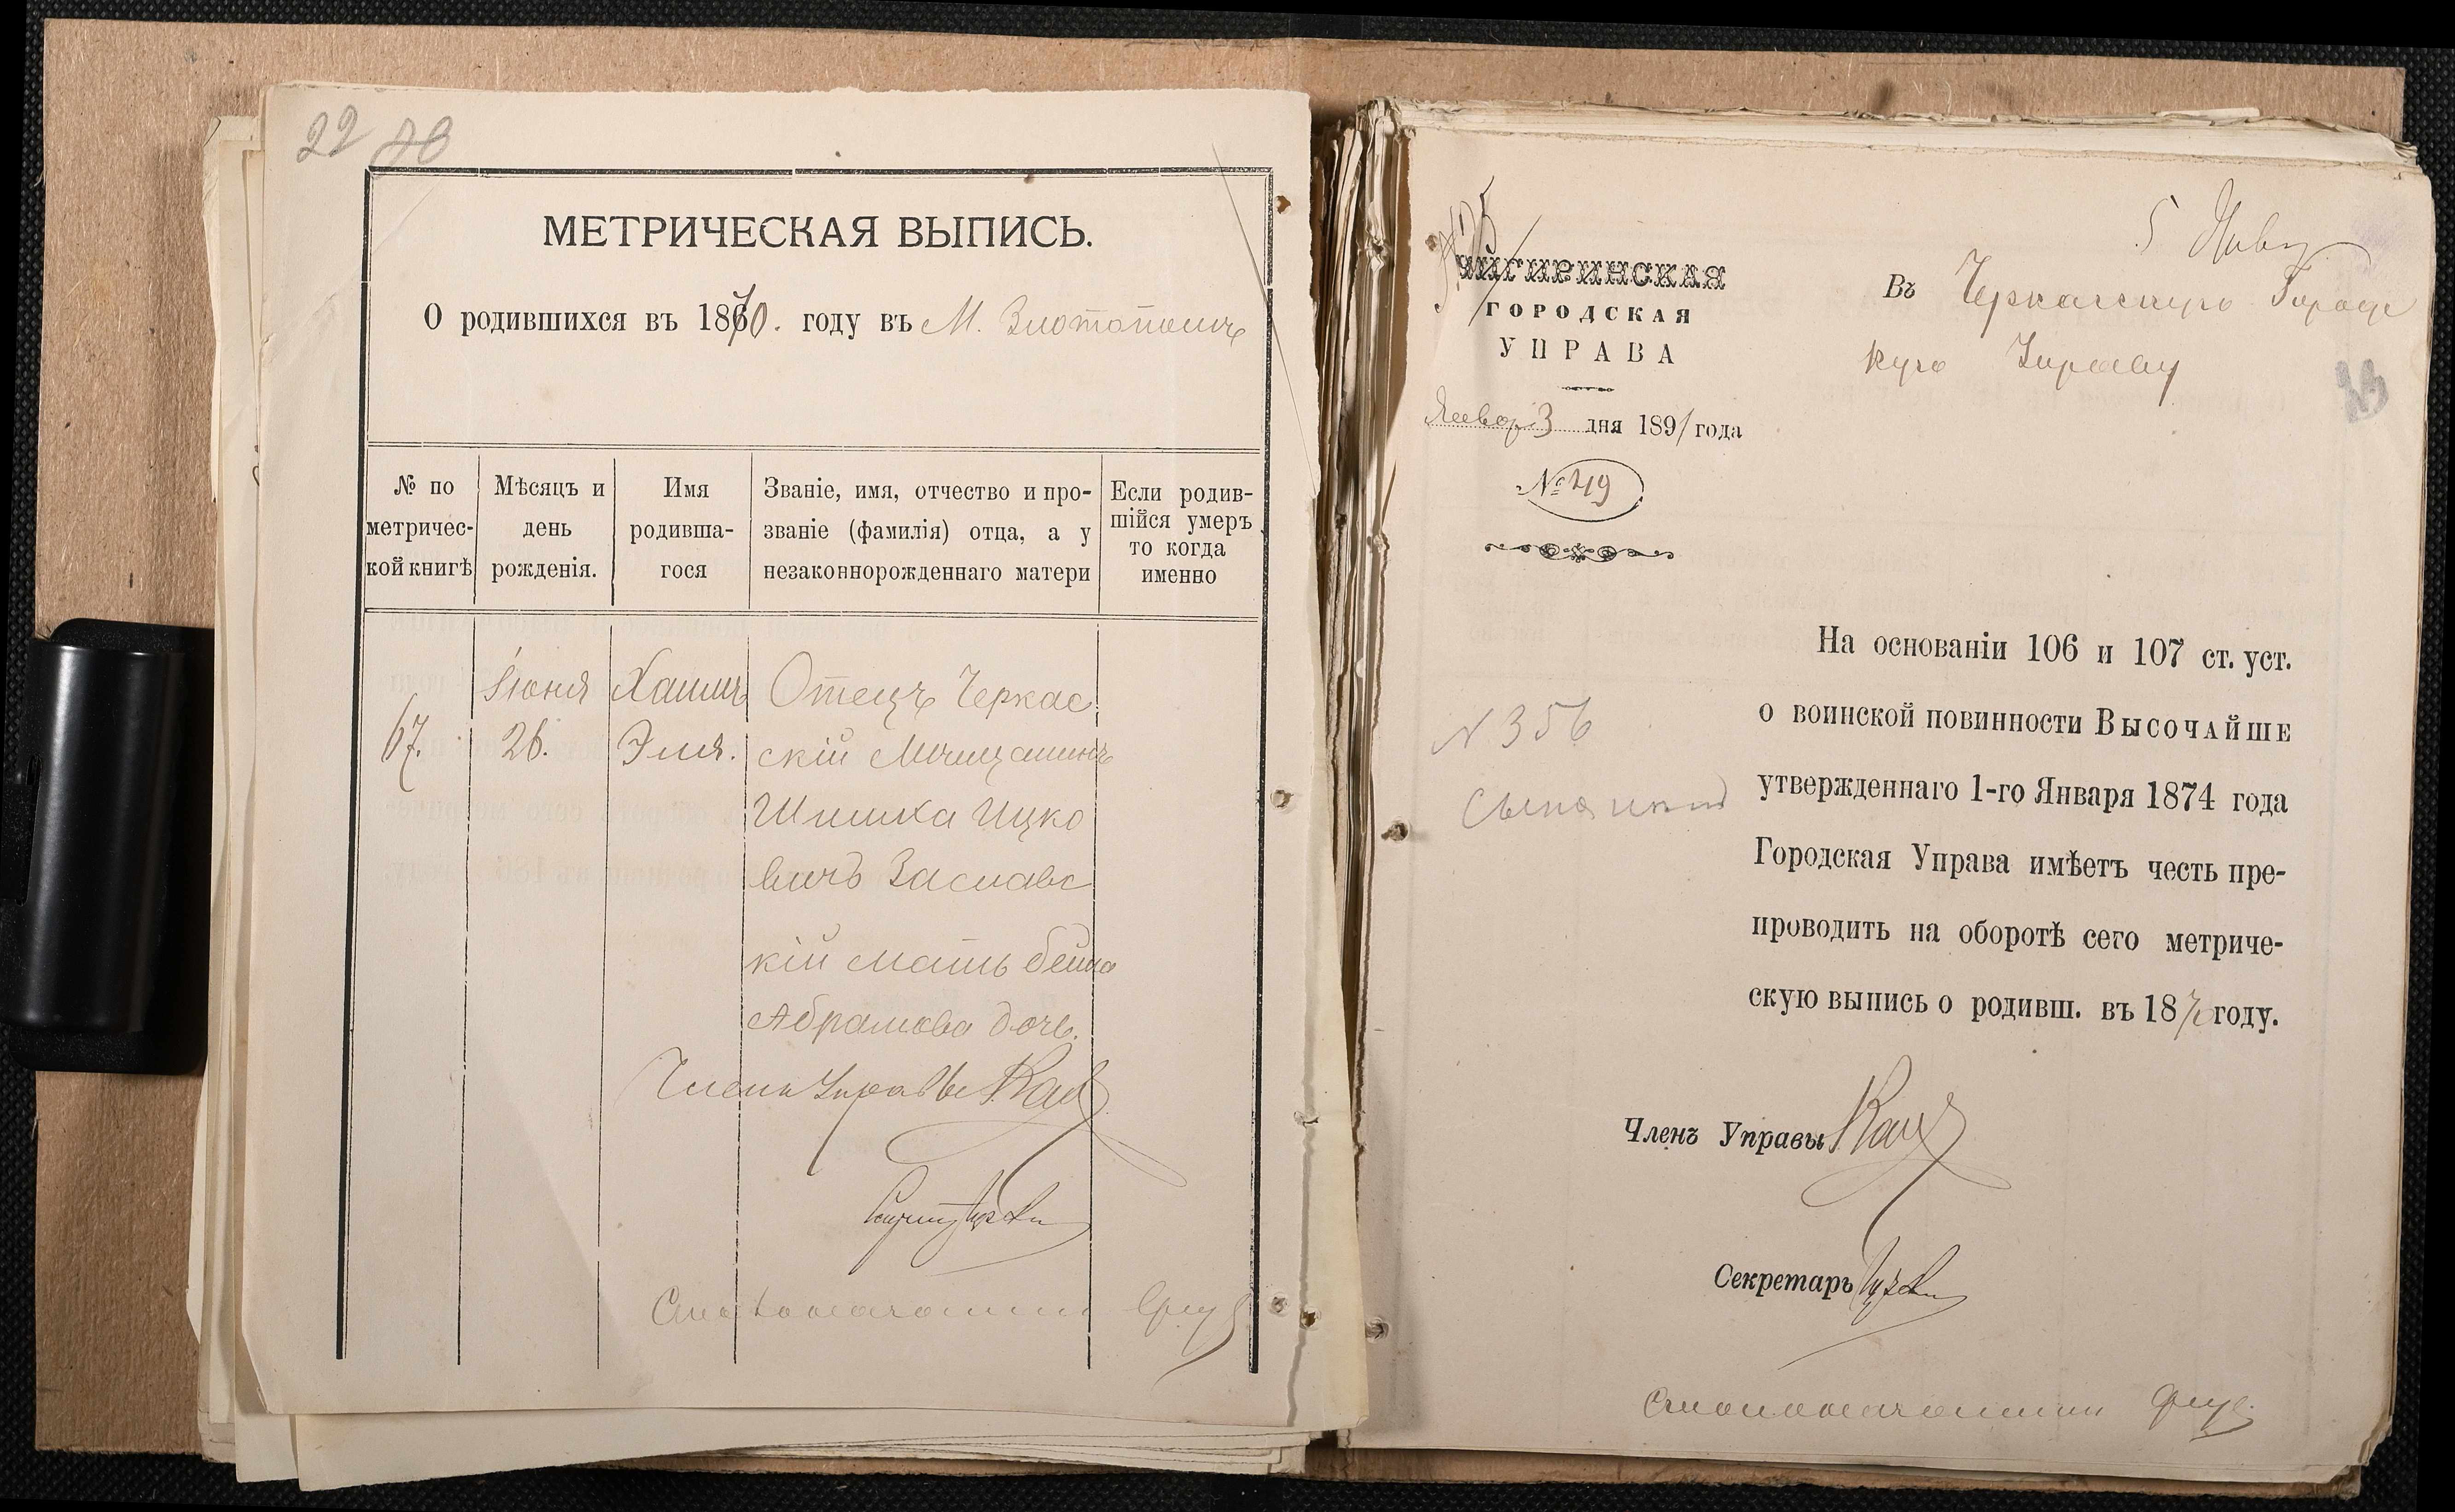 22
МЕТРИЧЕСКАЯ ВЫПИСЬ.
О родившихся въ 1870. году въ М. Златополѣ
№ по метричес-кой книгѣ
Мѣсяцъ и день рожденія.
Имя родивша-гося
Званіе, имя, отчество и про-
званіе (фамилія) отца, а у
незаконнорожденнаго матери
Если родив-
шійся умеръ
то когда
именно
67.
Іюня
26.
Хаимъ
Эля.
Отецъ Черкас
скій Мѣщанинъ
Шимка Ицко
вичъ Заславс
кій мать Бейла
Абрамова дочь.
Членъ Управы
5 Янв
ЧИГИРИНСКАЯ
ГОРОДСКАЯ
УПРАВА
Январ 3 дня 1891 года
№ 49
Въ Черкасскую Городс
кую Управу
23
На основаніи 106 и 107 ст. уст.
о воинской повинности ВЫСОЧАЙШЕ
утвержденнаго 1-го Января 1874 года
Городская Управа имѣетъ честь пре-
проводить на оборотѣ сего метриче-
скую выпись о родивш. въ 1870 году.
N 356
Членъ Управы
Секретарь